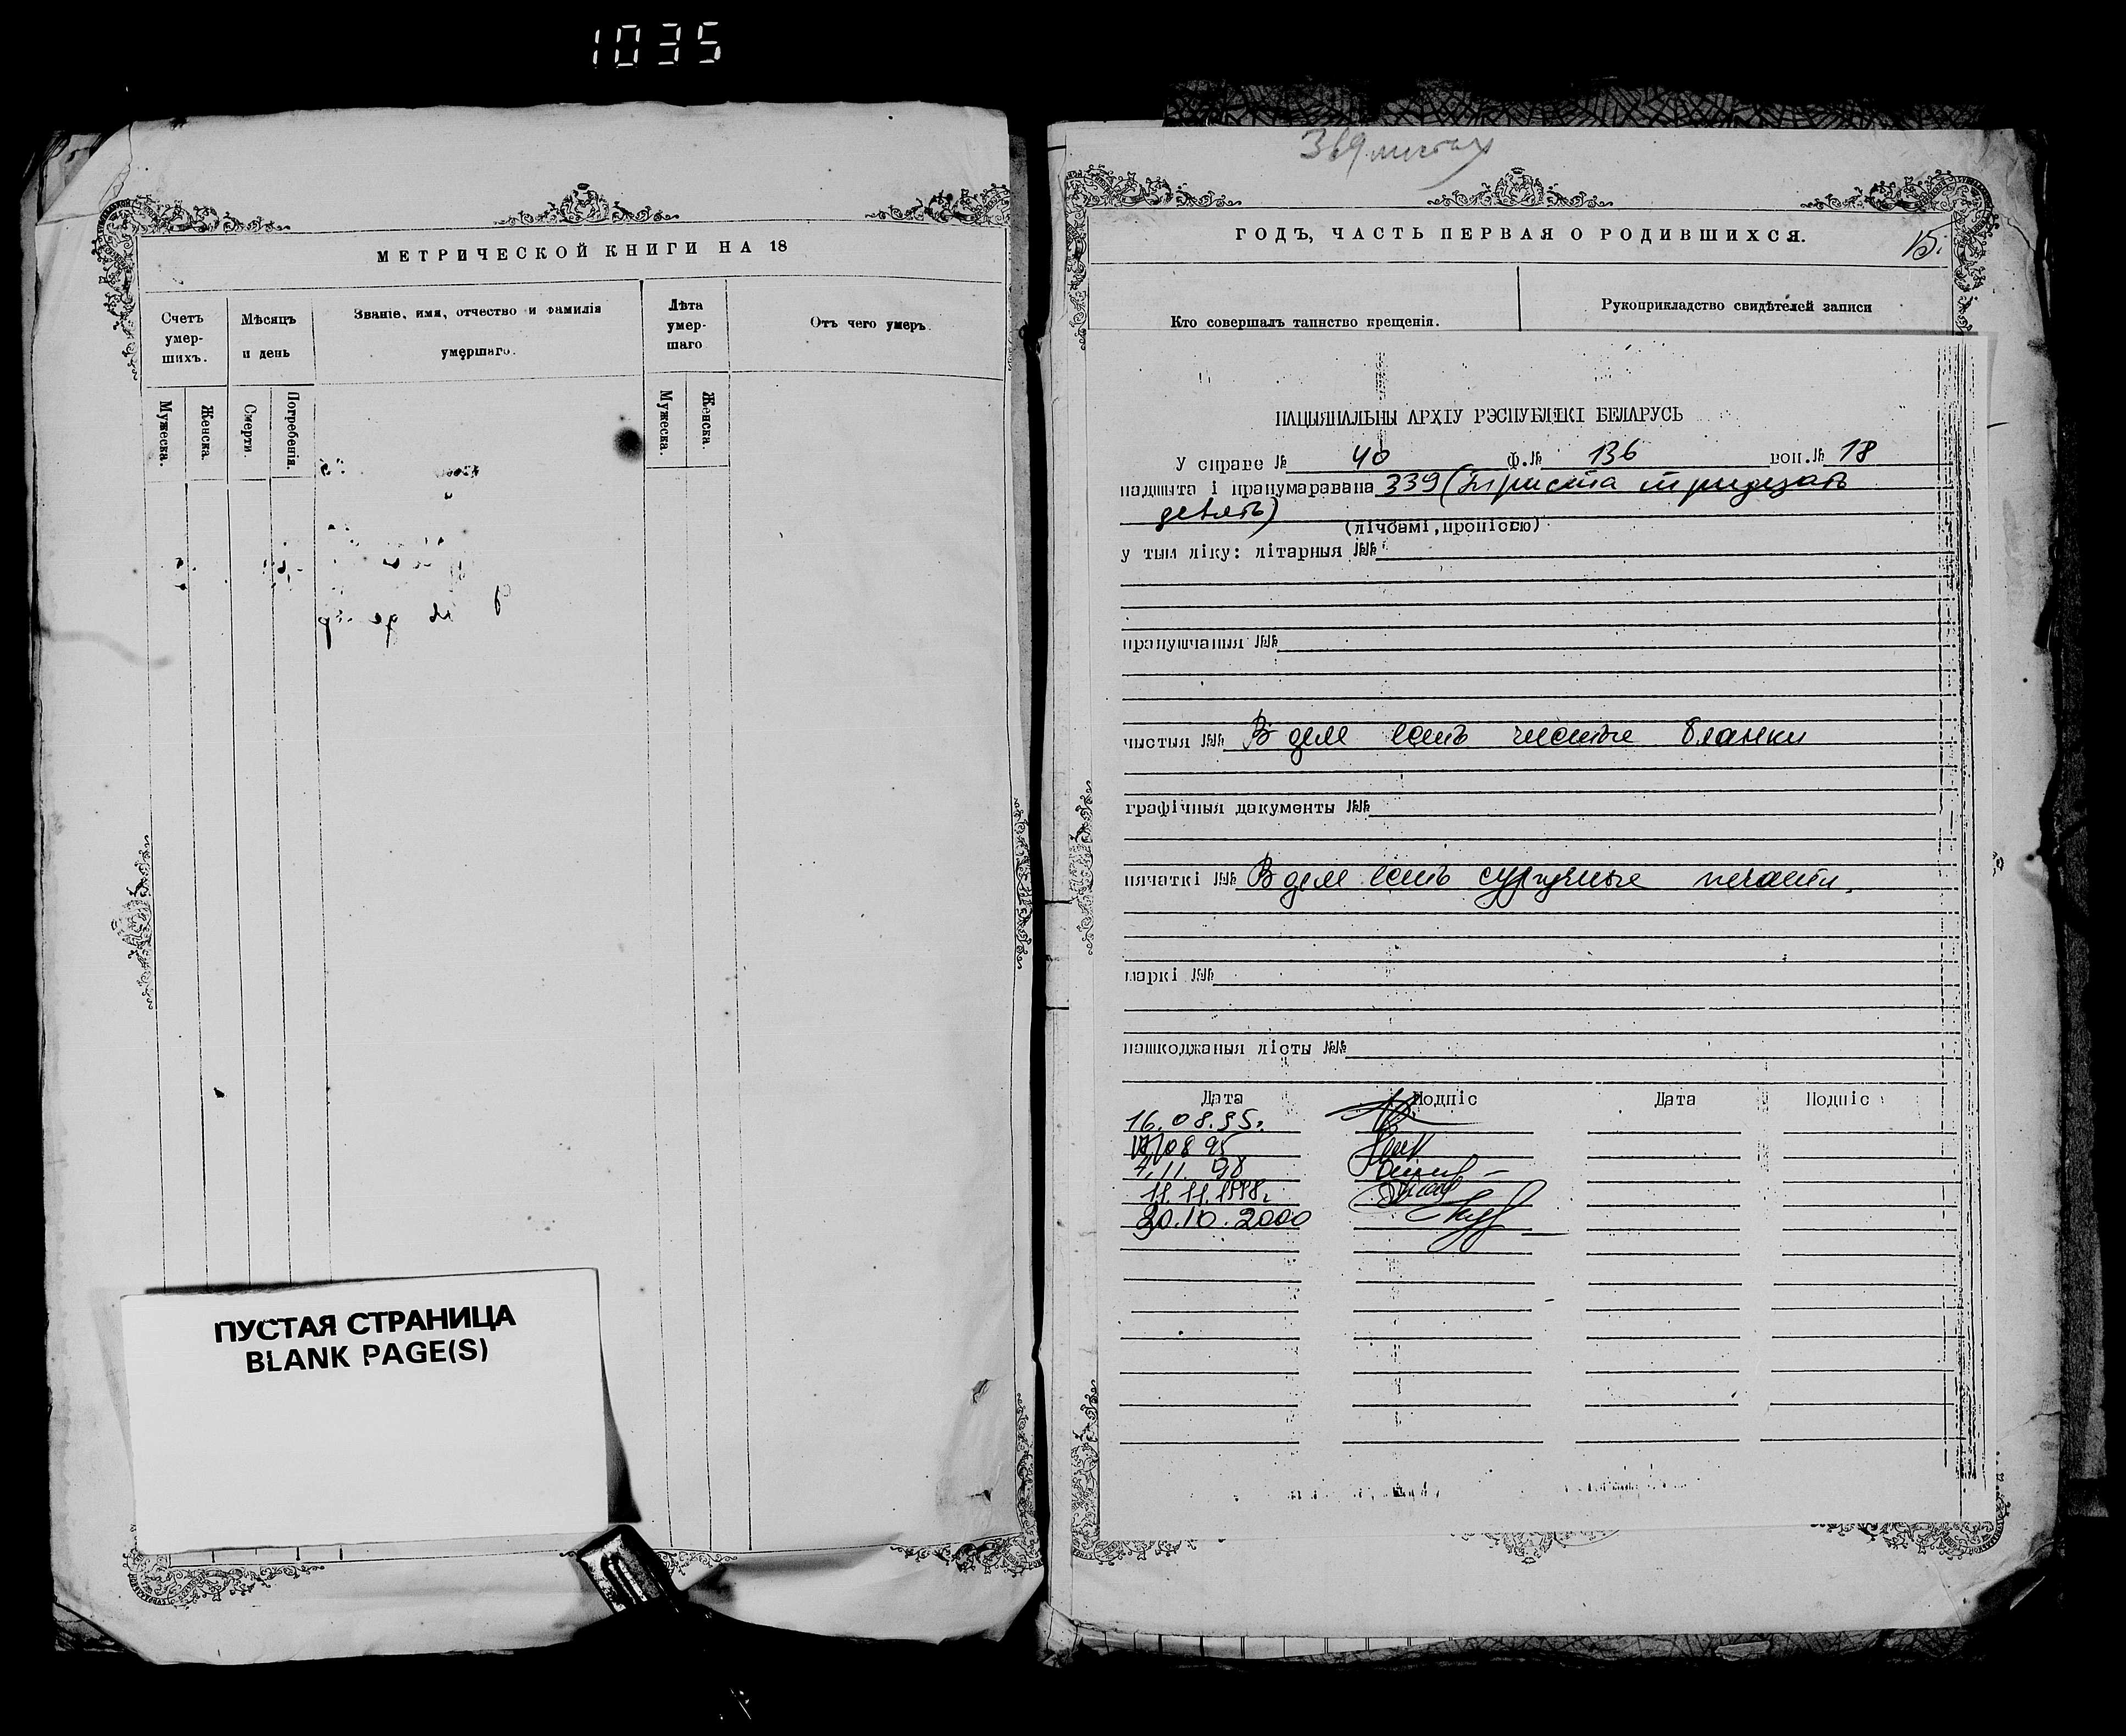 1035
МЕТРИЧЕСКОЙ КНИГИ НА 18
Счетъ умер-шихъ.
Мѣсяцъ и день
Званіе, имя, отчество и фамилія умершаго.
Лѣта умер-шаго
Отъ чего умеръ.
Мужеска.
Женска.
Смерти.
Погребенія.
Мужеска.
Женска.
ПУСТАЯ СТРАНИЦА
BLANK PAGE(S)
листах
ГОДЪ, ЧАСТЬ ПЕРВАЯ О РОДИВШИХСЯ.
15.
Кто совершалъ таинство крещенія.
Рукоприкладство свидѣтелей записи
НАЦЫЯНАЛЬНЫ АРХІУ РЭСПУБЛІКІ БЕЛАРУСЬ
У справе № 40 ф.№ 136 воп.№ 18
падшыта і пранумаравана 339 (триста тридцать
девять)
(лічбамі,пропіссю)
у тым ліку: літарныя №№
прапушчаныя №№
чыстыя №№ В деле есть чистые бланки
графічныя дакументы №№
пячаткі №№ В деле есть сургучные печати.
маркі №№
пашкоджаныя лісты №№
Дата Подпіс Дата Подпіс
16.08.95.
08 95
4.11.98
11.11.1998.
20.10.2000